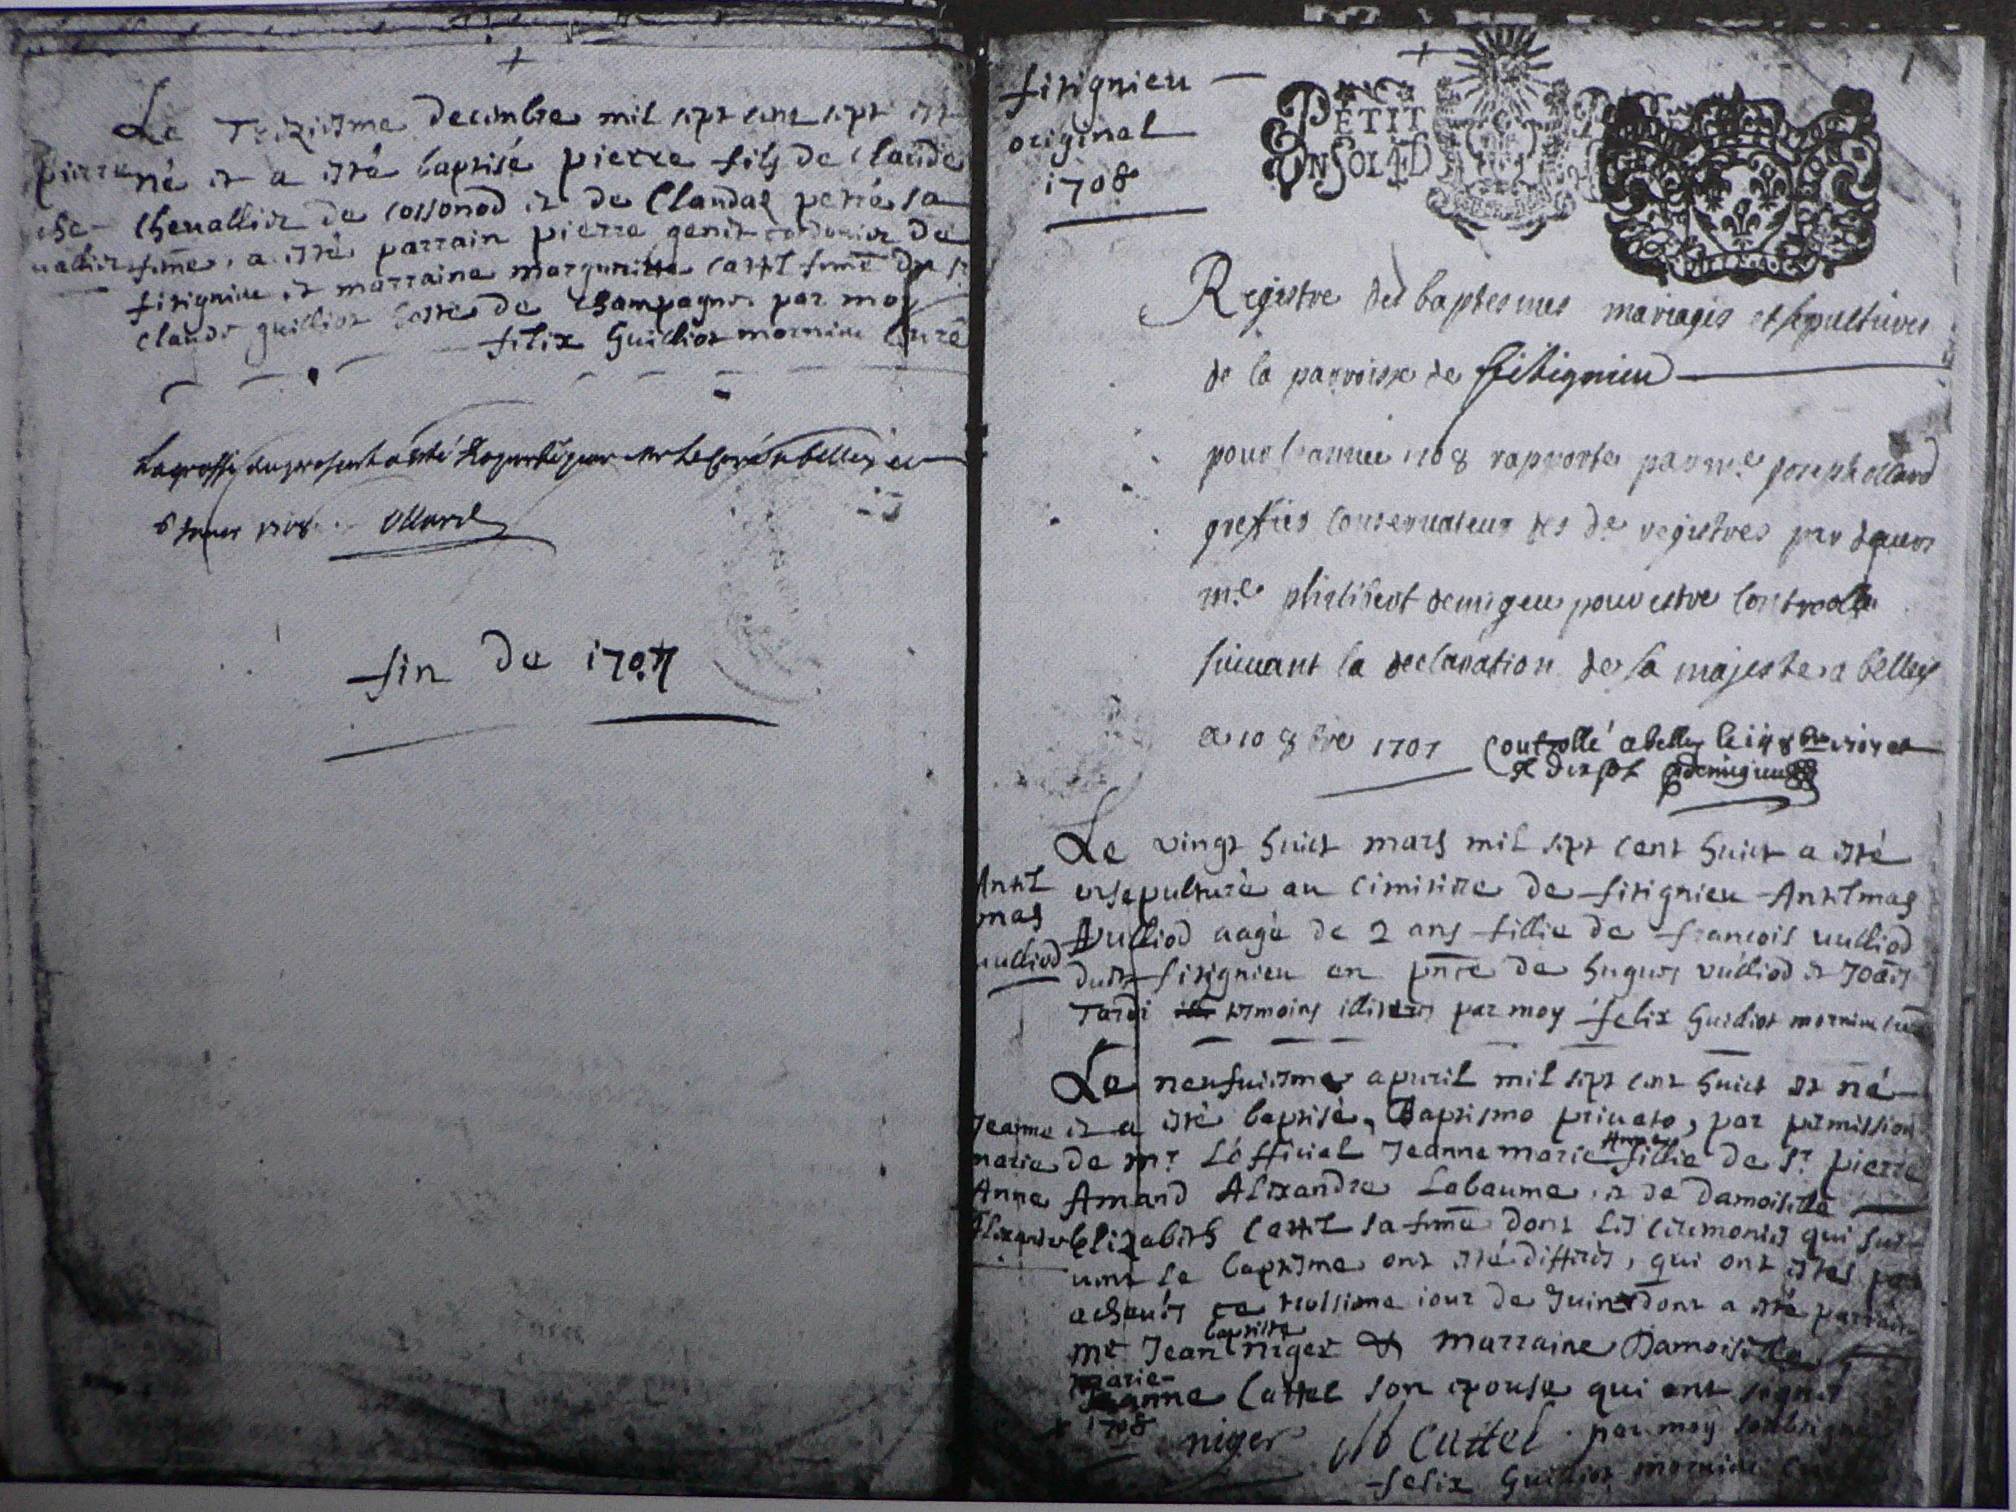 Le Treziesme decembre mil sept cent sept est
pierre né et a esté baptisé pierre fils de Claude
che- Chevallier de cossonod et de Claudaz petré sa
vallier feme, a esté parrain pierre genet cordonier de
fitignieu et marraine margueritte cattel feme du sr
claude guilliot hoste de Champagne par moy
felix Guilliot mornieu curé
La grosse du present a esté Raportée par Mr le Curé a belley ce
1708 Ollard
fin de 1707
fitignieu
original
1708
PETIT
1
Registre des baptesmes mariages et sepultures
de la parroisse de fitignieu
pour l'année 1708 rapporté par me joseph ollard
greffier conservateur des de registres par devant
me philibert demigieu pour estre controolé
suivant la declaration de sa majesté a belley
ce 10 8bre 1707 Controllé a belley le 8bre 1707 et
demigieu
Le vingt huict mars mil sept cent huict a esté
Antel ensepulturé au cimitiere de fitignieu Antelmaz
maz Vulliod aagé de 2 ans fillie de francois vulliod
vulliod dudt fitignieu en pnce de hugues vulliod et
Tardi tesmoins illiteres par moy felix Guilliot mornieu curé
Le neufuiesme apuril mil sept cent huict est né
Jeanne et a esté baptisé, Baptismo privato, par permission
marie de mr L'official Jeanne marie Anne fillie de Sr pierre
Anne Amand Alexandre Labaume et de damoiselle
Alexandre Elizabeth Cattel sa feme dont les ceremonies qui sui-
vent le baptesme ont esté differés, qui ont estes
achevés ce troisieme iour de Juin dont a esté parrain
mr Jean baptiste niger & marraine Damoiselle
marie-
Jeanne Cattel son epouse qui ont signés
1708
niger Cattel par moy soubsigné
felix Guilliot mornieu